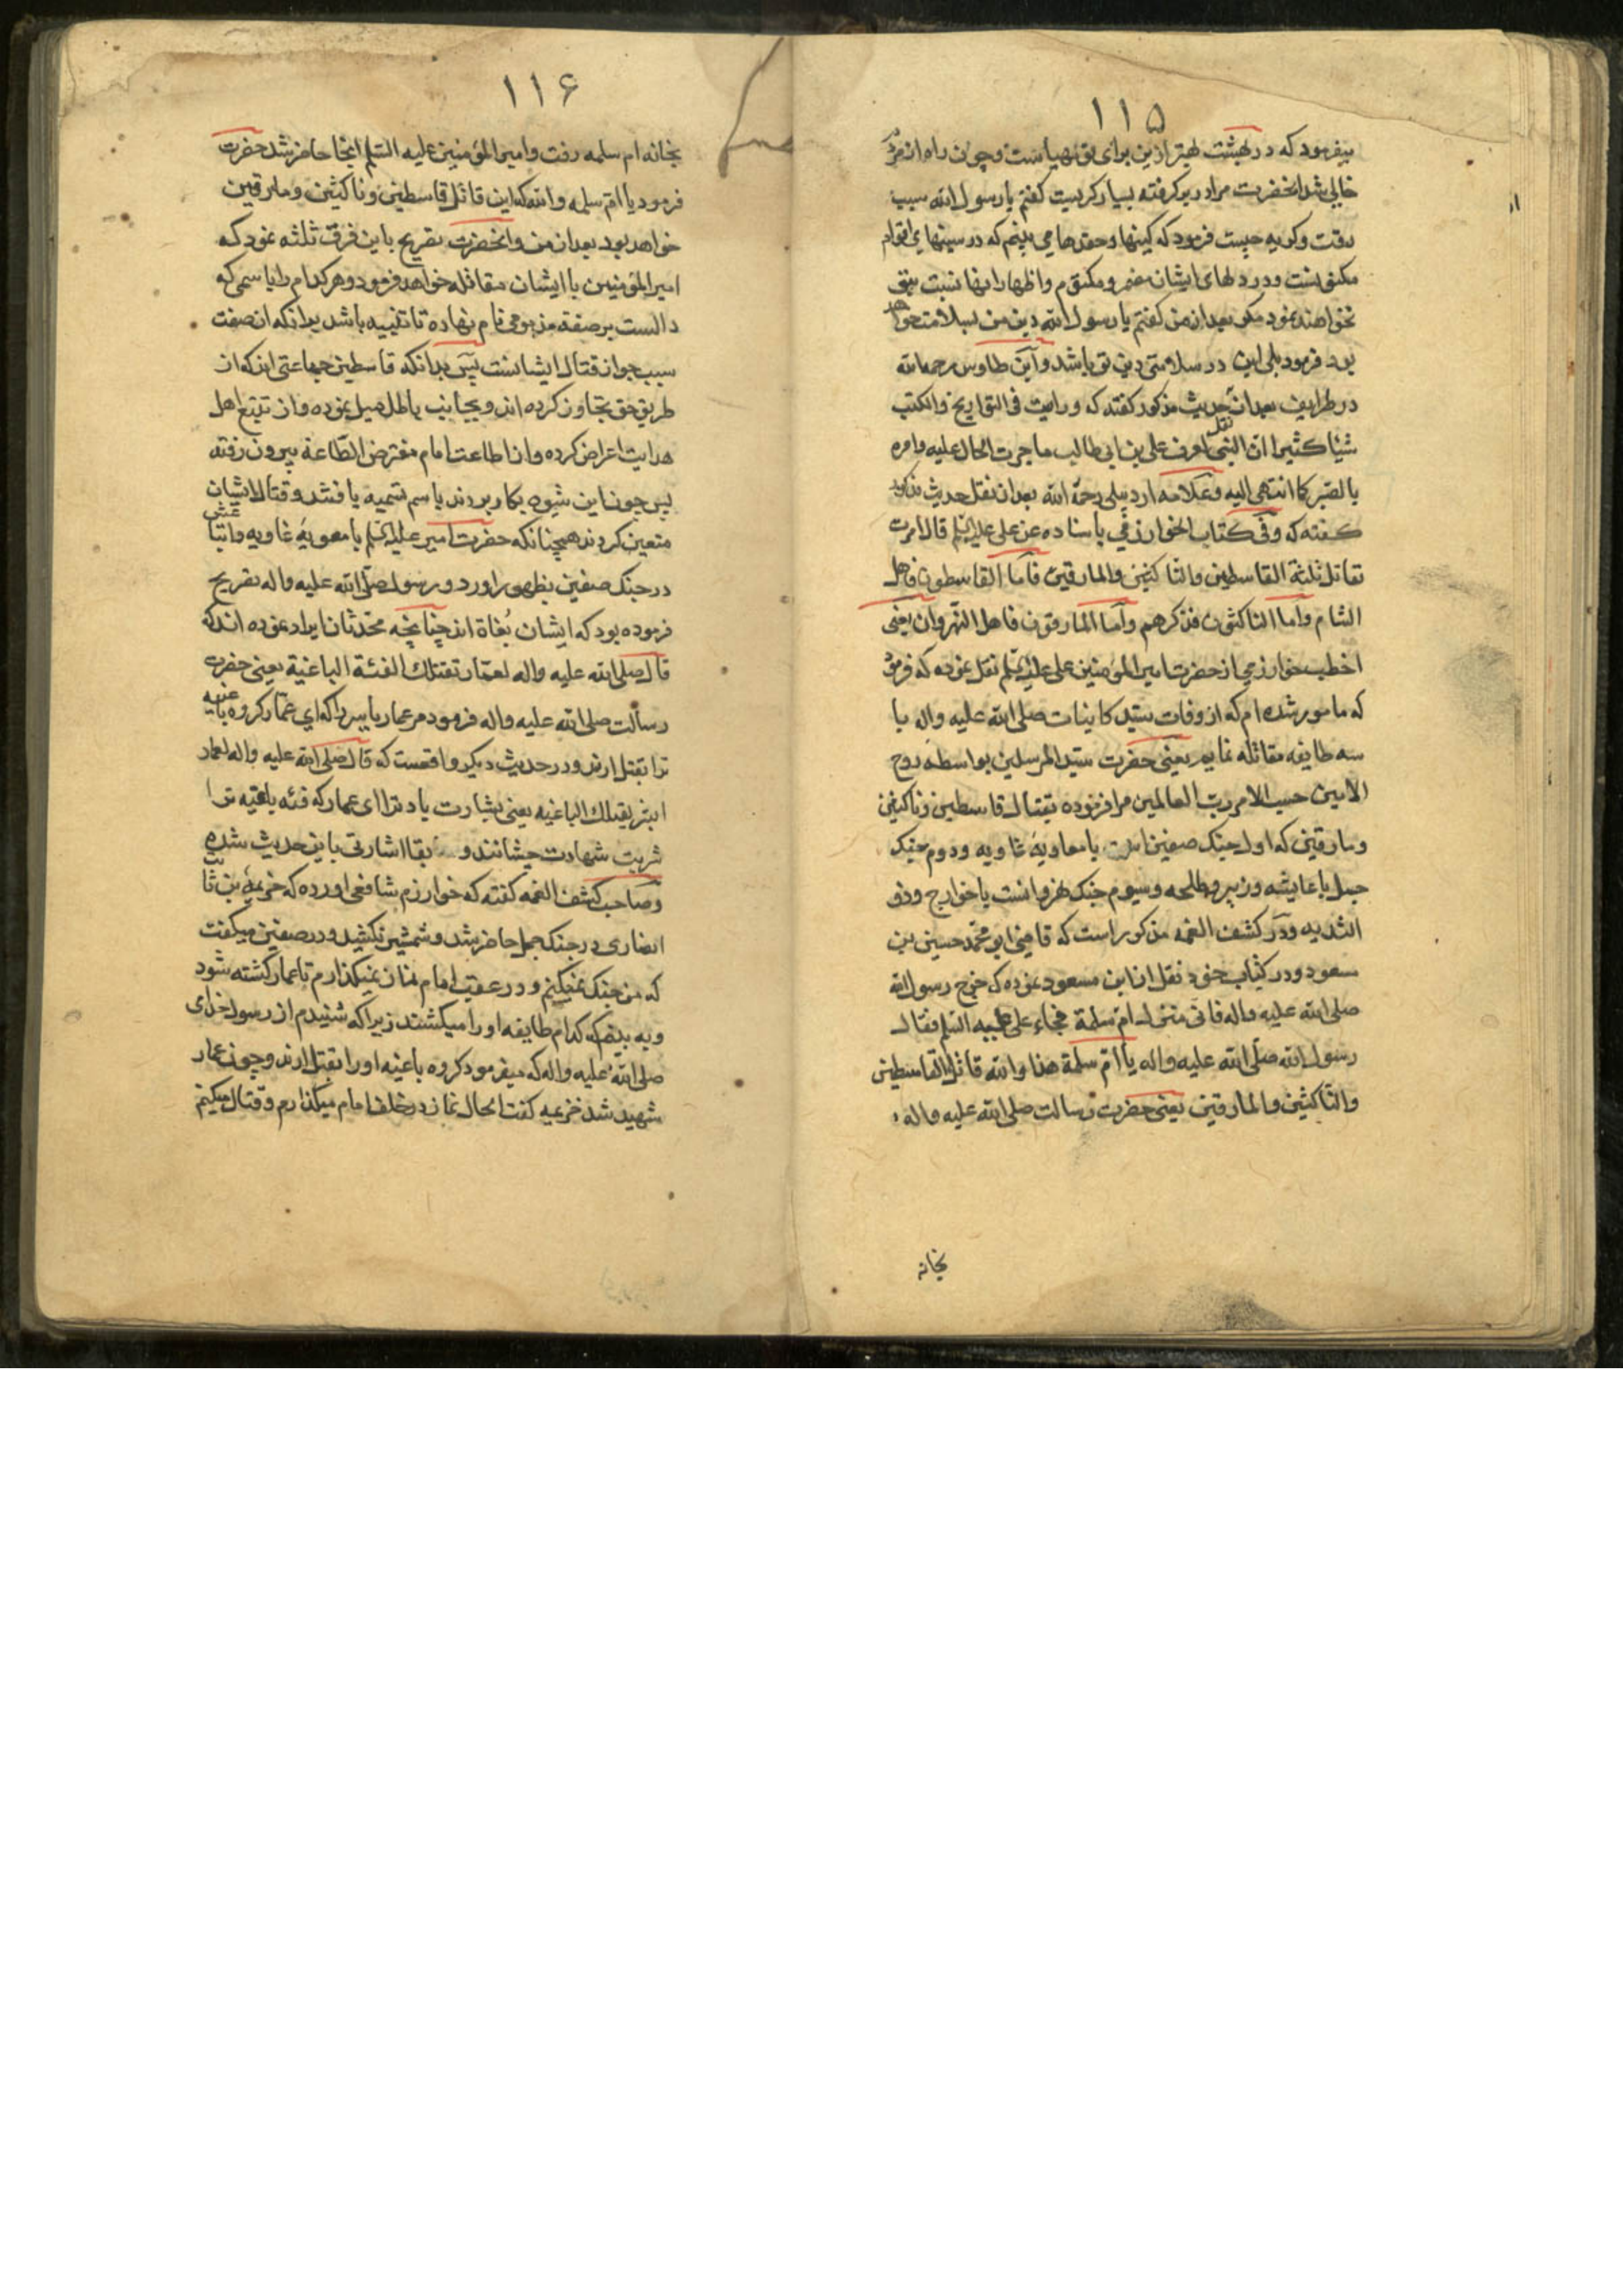 ۱۱۵
میفرمود که در بهشت بهتر ازین برای تو مهیاست و چون راه از مردم
خالی شد انحضرت مرا در بر کرفته بسیار کریست کفتم یا رسول الله سبب
رقت و کریه چیست فرمود که کینها و حقدها می بینم که در سینهای اقوام
مکنونست و در دلهای ایشان مضمر و مکتوم و اظهار انها نسبت بتو
نخواهند نمود مکر بعد از من کفتم یا رسول الله دین من بسلامت خواهد
بود فرمود بلی این در سلامتی دین تو باشد و ابن طاوس رحمه الله
در طرایف بعد از نقل حدیث مذکور کفته که و رایت فی التواریخ و الکتب
شیئا کثیرا ان النبی لعرف علی بن ابی طالب ما جرت الحال علیه و امره
بالصبر کما انتهی الیه و علامه اردبیلی رحمة الله بعد از نقل حدیث مذکور
کفته که و فی کتاب الخوارزمی باسناده عن علی علیه السلم قال امرت
بقاتل ثلثة القاسطین و الناکثین و المارقین فاما القاسطون فاهل
الشام و اما الناکثون فذکرهم و اما المارقون فاهل النهروان یعنی
اخطب خوارزمی از حضرت امیر المؤمنین علی علیه السلم نقل نموده که فرمود
که مامور شده ام که از وفات سید کاینات صلی الله علیه و اله با
سه طایفه مقاتله نمایم یعنی حضرت سید المرسلین بواسطه روح
الامین حسب الامر رب العالمین مرا فرموده بقتال قاسطین و ناکثین
و مارقین که اول جنک صفین است با معاویه غاویه و دوم جنک
جمل با عایشه و زبیر و طلحه و سیوم جنک نهروانست با خوارج و ذو
الثدیه و در کشف الغمه مذکور است که قاضی ابو محمد حسین بن
مسعود در کتاب خود نقل از ابن مسعود نموده که خرج رسول الله
صلی الله علیه و اله فاتی منزل ام سلمة فجاء علی علیه السلم فقال
رسول الله صلی الله علیه و اله یا ام سلمة هذا والله قاتل القاسطین
و الناکثین و المارقین یعنی حضرت رسالت صلی الله علیه و اله
بخانه
۱۱۶
بخانه ام سلمه رفت و امیر المؤمنین علیه السلم انجا حاضر شد حضرت
فرمود یا ام سلمه والله که این قاتل قاسطین و ناکثین و مارقین
خواهد بود بعد از من و انحضرت تصریح باین فرق ثلثه نمود که
امیر المؤمنین با ایشان مقاتله خواهد فرمود و هر کدام را باسمی که
دالست بر صفة مذمومی نام نهاده تا تنبیه باشد برانکه ان صفت
سبب جواز قتال ایشانست پس بدانکه قاسطین جماعتی اند که از
طریق حق تجاوز کرده اند و بجانب باطل میل نموده و از تتبع اهل
هدایت اعراض کرده و از اطاعت امام مفترض الطاعة بیرون رفته
پس چون این شیوه بکار بردند باسم تسمیه یافتند و قتال ایشان
متعین کردند همچنانکه حضرت امیر علیه السلم با معویه غاویه و اتباعش
در جنک صفین بظهور اورد و رسول صلی الله علیه و اله تصریح
فرموده بود که ایشان بُغاة اند چنانچه محدثان ایراد نموده اند که
قال صلی الله علیه و اله لعمار تقتلک الفئة الباغیة یعنی حضرت
رسالت صلی الله علیه و اله فرمود مر عمار یاسر را که ای عمار کروه باغیه
ترا بقتل ارند و در حدیث دیکر واقعست که قال صلی الله علیه و اله لعمار
ابشر یقتلک الباغیه یعنی بشارت باد ترا ای عمار که فئه باغیه ترا
شربت شهادت چشانند و سابقا اشارتی باین حدیث شده
و صاحب کشف الغمه کفته که خوارزم شافعی اورده که خزیمة بن ثابت
انصاری در جنک جمل حاضر شد و شمشیر نکشید و در صفین میکفت
که من جنک نمیکنم و در عقب امام نماز نمیکذارم تا عمار کشته شود
و به بینم که کدام طایفه او را میکشند زیرا که شنیدم از رسول خدای
صلی الله علیه و اله که میفرمود کروه باغیه او را بقتل ارند و چون عمار
شهید شد خزیمه کفت الحال نماز در خلف امام میکذارم و قتال میکنم